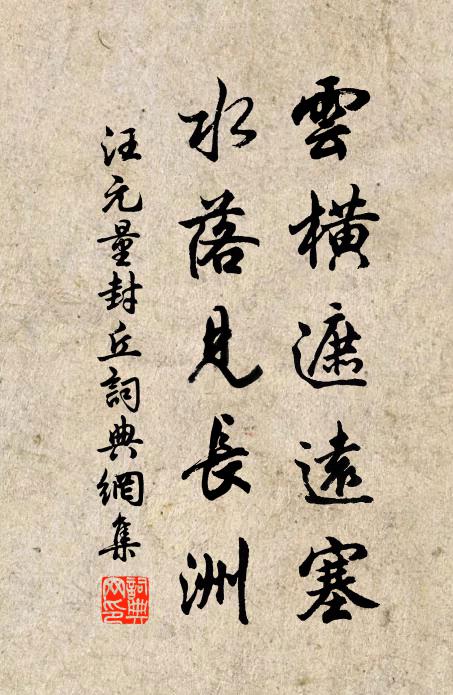 雲橫遮遠塞
水落見長洲
汪元量封丘詞典網集
詞典網印